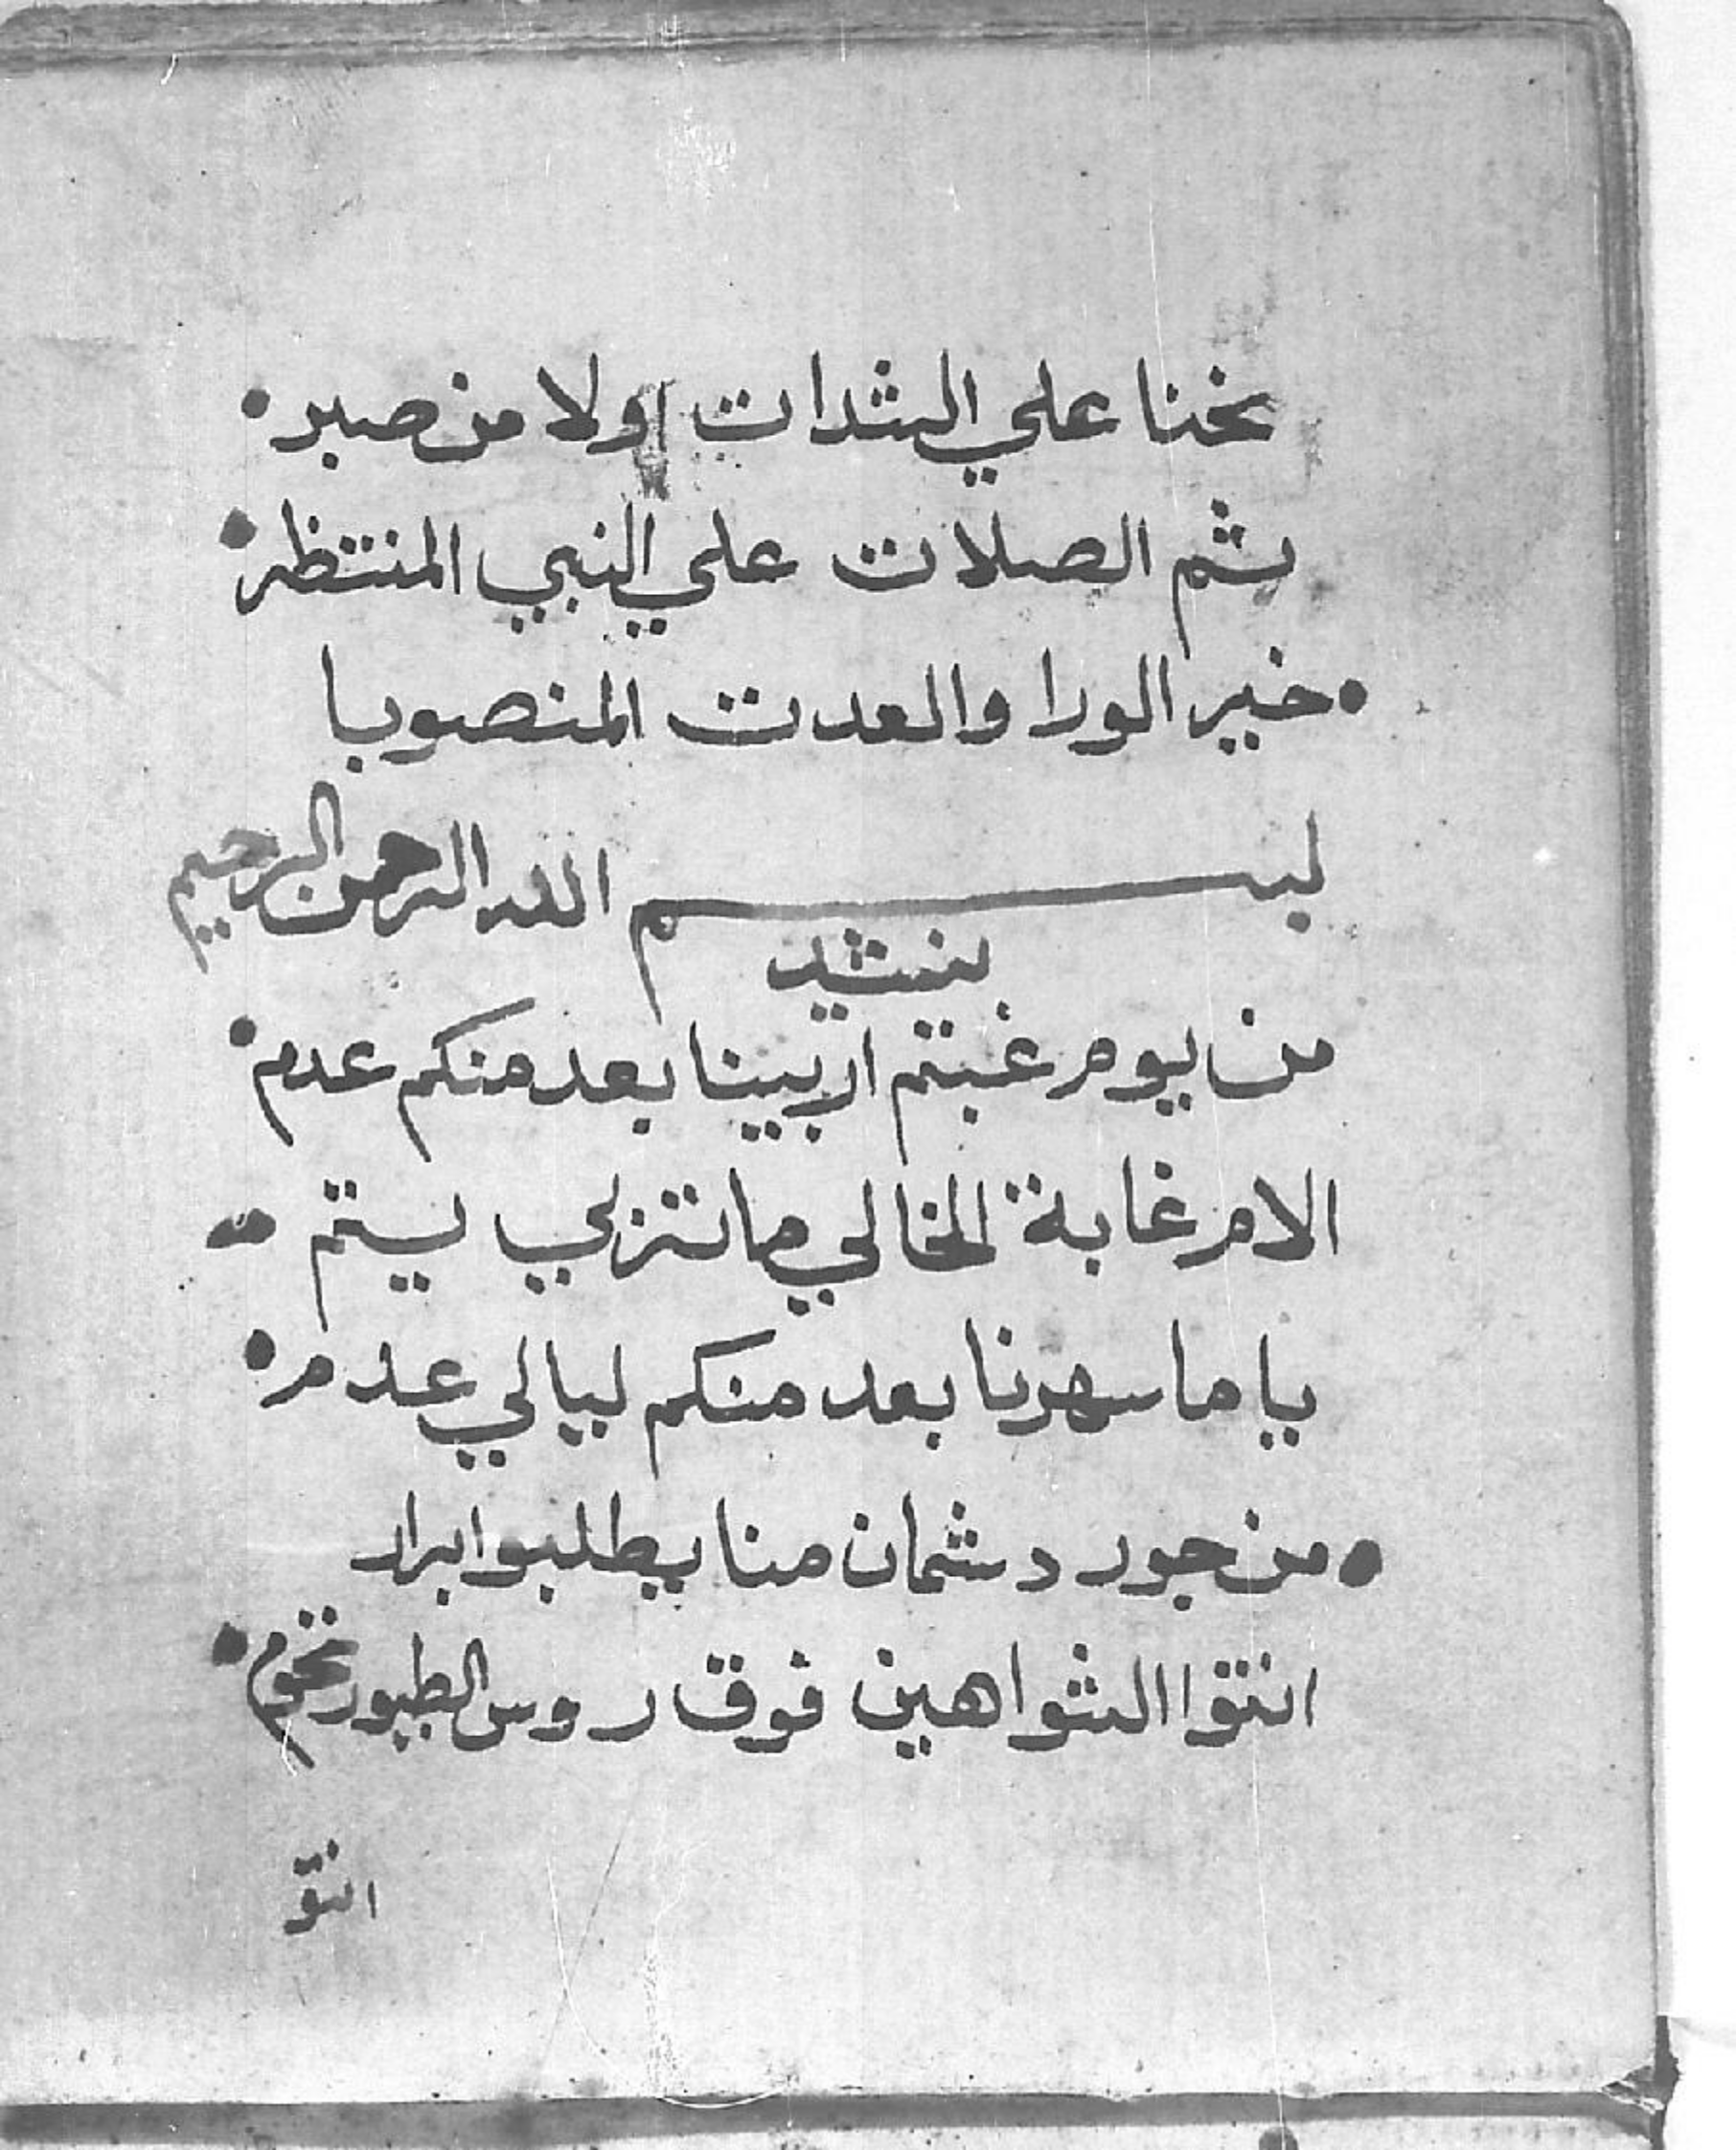 نحنا علي الشدات اولا من صبر •
شم الصلات علي النبي المنتظر •
• خير الورا والعدت المنصوبا
بسم الله الرحمن الرحيم
ينشد
من يوم غبتم اربينا بعد منكم عدم •
الام غابة الخالي ما تزبي يستم •
ياما سهرنا بعد منكم ليالي عدم •
• من جور دشمان منا يطلبوا ابرار
انتوا الشواهين فوق روس الطيور تخوم •
انتو